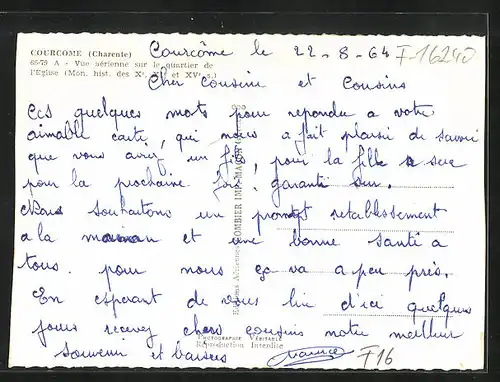 COURCOME (Charente)
65-79 A - Vue aérienne sur le quartier de
l'Eglise (Mon. hist. des Xe, XIe et XVe s.)
Courcôme le 22-8-64
F-16240
Cher cousine et Cousins
Ces quelques mots pour repondre a votre
aimable carte, qui nous a fait plaisir de savoir
que vous avez un fils, pour la fille sa sera
pour la prochaine fois, garanti sur.
Nous souhaitons un prompt retablissement
a la maman et une bonne santé a
tous. pour nous ça va a peu près.
En esperant de vous lire d'ici quelques
jours recevez chers cousins notre meilleur
souvenir et baisers
Maurice
F16
COMBIER IMP. MACON
PHOTOGRAPHIE VÉRITABLE
Reproduction Interdite